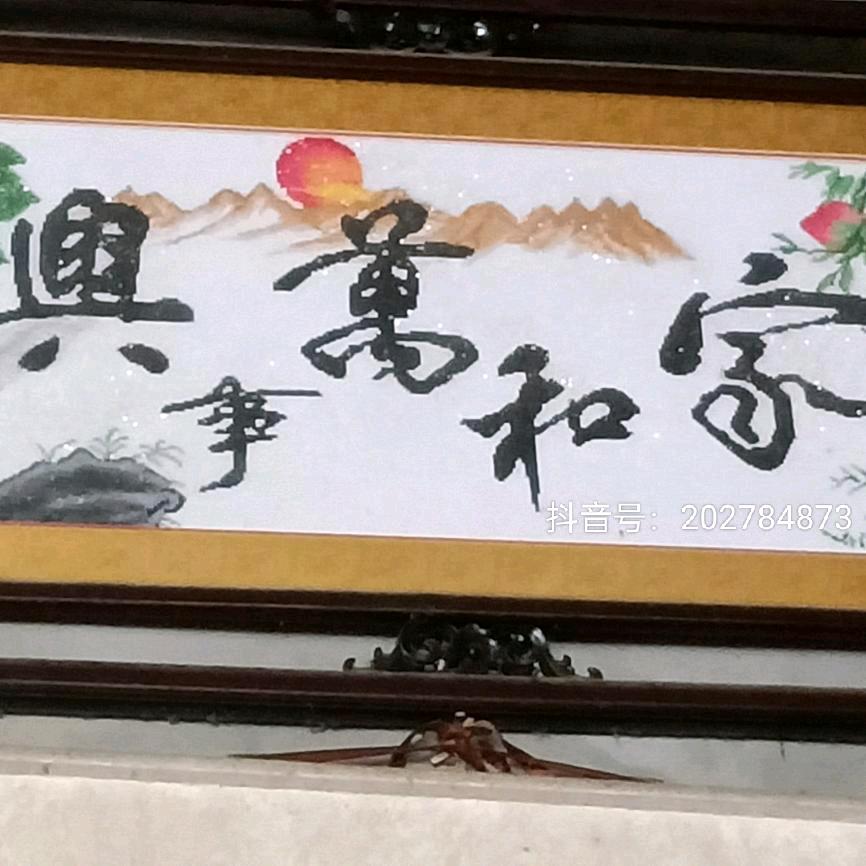 家和萬事興
抖音号：202784873